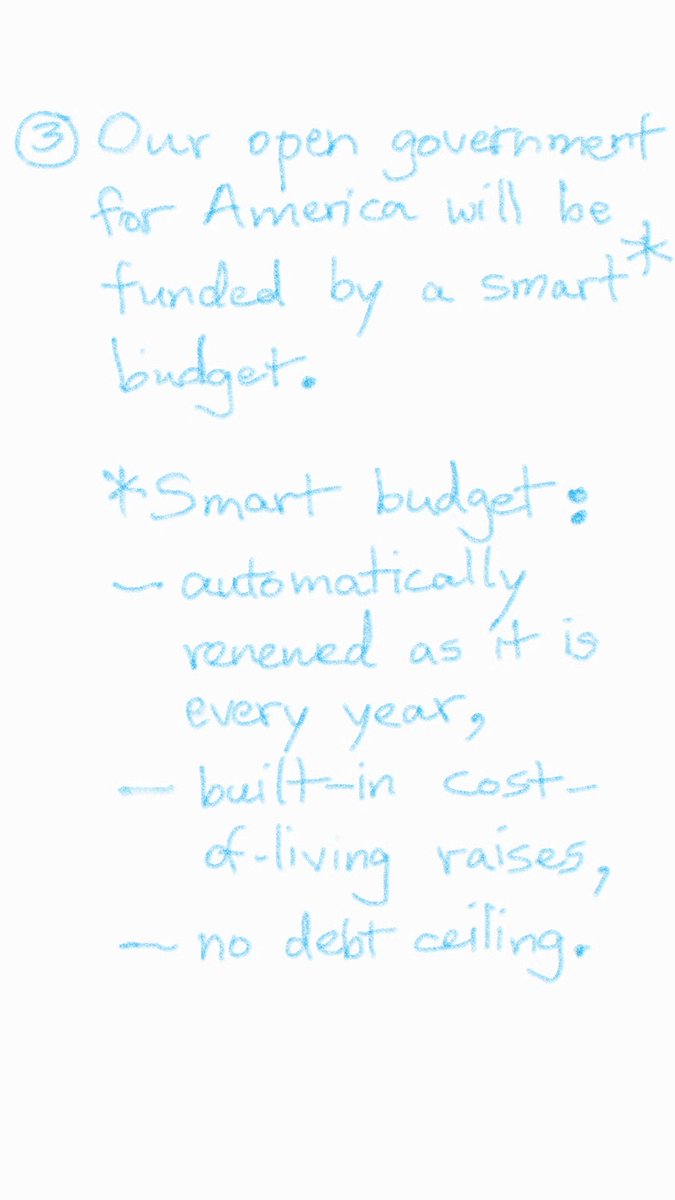 ③ Our open government
for America will be
funded by a smart*
budget.
*Smart budget:
- automatically
renewed as it is
every year,
- built-in cost-
of-living raises,
- no debt ceiling.